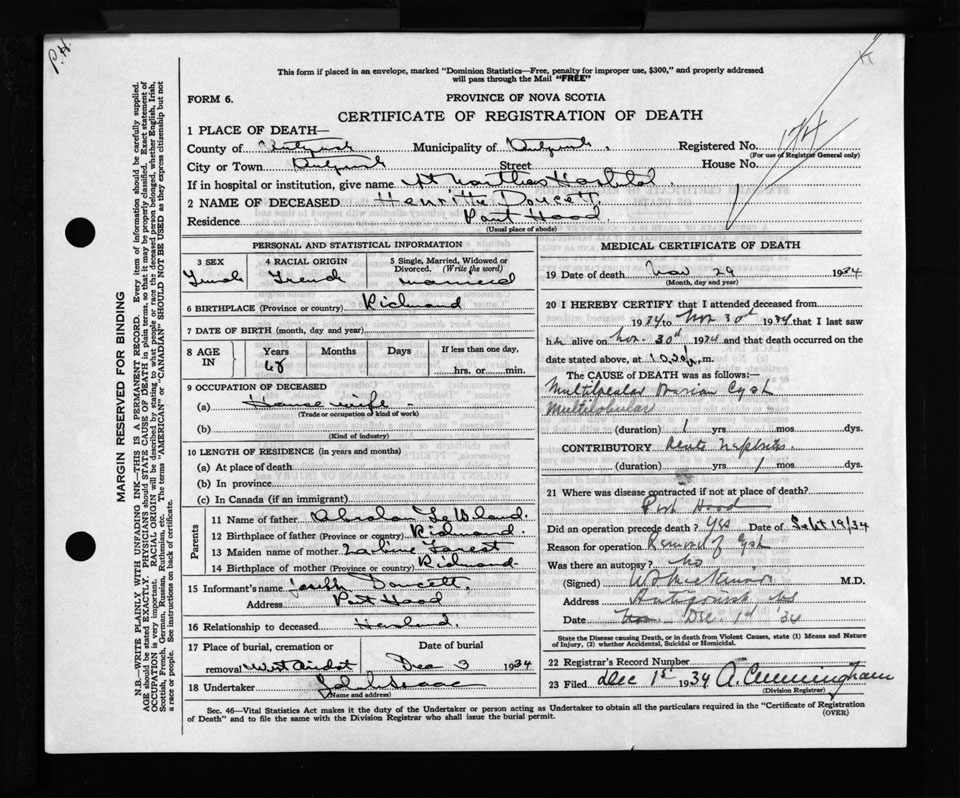 P.H.
This form if placed in an envelope, marked "Dominion Statistics—Free, penalty for improper use, $300," and properly addressed
will pass through the Mail "FREE"
FORM 6.
PROVINCE OF NOVA SCOTIA
CERTIFICATE OF REGISTRATION OF DEATH
1 PLACE OF DEATH—
County of Antigonish Municipality of Antigonish. Registered No.
(For use of Registrar General only)
174
City or Town Antigonish Street House No.
If in hospital or institution, give name St Marthas Hospital
2 NAME OF DECEASED Henritta Doucett.
Residence Port Hood
(Usual place of abode)
PERSONAL AND STATISTICAL INFORMATION
3 SEX 4 RACIAL ORIGIN 5 Single, Married, Widowed or
Divorced. (Write the word)
Female French married
6 BIRTHPLACE (Province or country) Richmond
7 DATE OF BIRTH (month, day and year)
8 AGE IN Years Months Days If less than one day,
68 hrs. or min.
9 OCCUPATION OF DECEASED
(a) House wife -
(Trade or occupation or kind of work)
(b)
(Kind of industry)
10 LENGTH OF RESIDENCE (in years and months)
(a) At place of death
(b) In province
(c) In Canada (if an immigrant)
Parents
11 Name of father Abraham LeBland.
12 Birthplace of father (Province or country) Richmond.
13 Maiden name of mother Forest
14 Birthplace of mother (Province or country) Richmond.
15 Informant's name Joseph Doucett
Address Port Hood
16 Relationship to deceased Husband.
17 Place of burial, cremation or Date of burial
removal West Arichat Dec 3 1934
18 Undertaker John Isaac
(Name and address)
MEDICAL CERTIFICATE OF DEATH
19 Date of death Nov 29 1934
(Month, day and year)
20 I HEREBY CERTIFY that I attended deceased from
1934 to Nov. 30th 1934 that I last saw
her alive on Nov. 30th 1934 and that death occurred on the
date stated above, at m.
The CAUSE of DEATH was as follows:
Multilocular Ovarian Cyst
Multilobular
(duration) 1 yrs mos. dys.
CONTRIBUTORY Acute Nephritis.
(duration) yrs 1 mos. dys.
21 Where was disease contracted if not at place of death?
Port Hood
Did an operation precede death? Yes Date of Sept 19/34
Reason for operation Removal of Cyst
Was there an autopsy? No
(Signed) M.D.
Address Antigonish, NS
Date Dec. 1st '34
State the Disease causing Death, or in death from Violent Causes, state (1) Means and Nature
of Injury, (2) whether Accidental, Suicidal or Homicidal.
22 Registrar's Record Number
23 Filed Dec 1st 1934 A. Cunningham
(Division Registrar)
Sec. 46—Vital Statistics Act makes it the duty of the Undertaker or person acting as Undertaker to obtain all the particulars required in the "Certificate of Registration
of Death" and to file the same with the Division Registrar who shall issue the burial permit.
(OVER)
MARGIN RESERVED FOR BINDING
N.B.—WRITE PLAINLY WITH UNFADING INK—THIS IS A PERMANENT RECORD. Every item of information should be carefully supplied.
AGE should be stated EXACTLY. PHYSICIANS should STATE CAUSE OF DEATH in plain terms, so that it may be properly classified. Exact statement of
OCCUPATION is very important. RACIAL ORIGIN will be described by stating to what people or race the deceased person belonged, whether English, Irish,
Scottish, French, German, Russian, Ruthenian, etc. The terms "AMERICAN" or "CANADIAN" SHOULD NOT BE USED as they express citizenship but not
a race or people. See instructions on back of certificate.